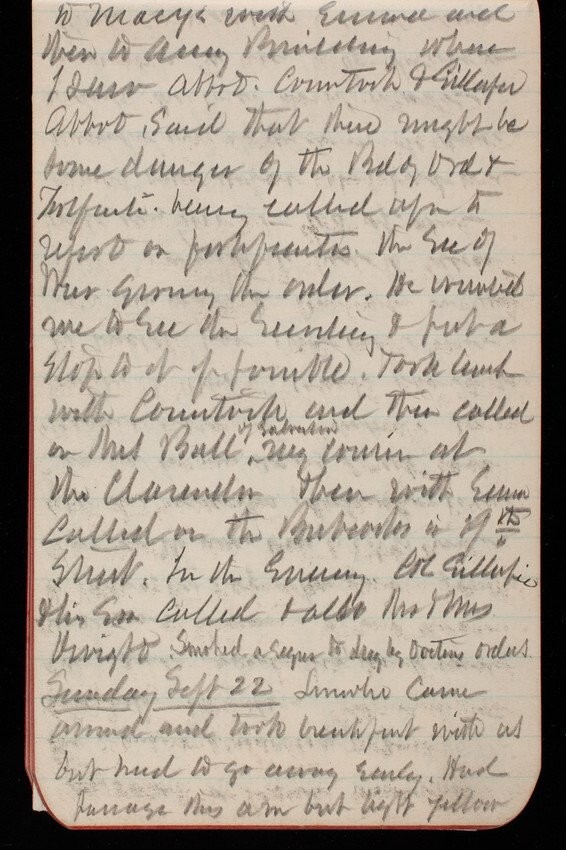 to Macys with Emma and
then to Army Building where
I saw Abbot. Comstock & Gillespie
Abbot. Said that there might be
some danger of the Bd of Ord &
Fortfcatn. being called upon to
report on fortifications the Sec of
War giving the order. He wanted
me to see the Secretary & put a
stop to it if possible. Took lunch
with Comstock and then called
on Mrs Ball of Galveston, my cousin at
the Clarendon then with Emma
Called on the Babcocks in 19th
Street. In the Evening. Col Gillespie
& his son called & also Mr & Mrs
Dwight. Smoked a to day by Doctors orders
Sunday Sept 22 Lincoln Came
around and took breakfast with us
but had to go away early. Had
passage this a.m but light yellow